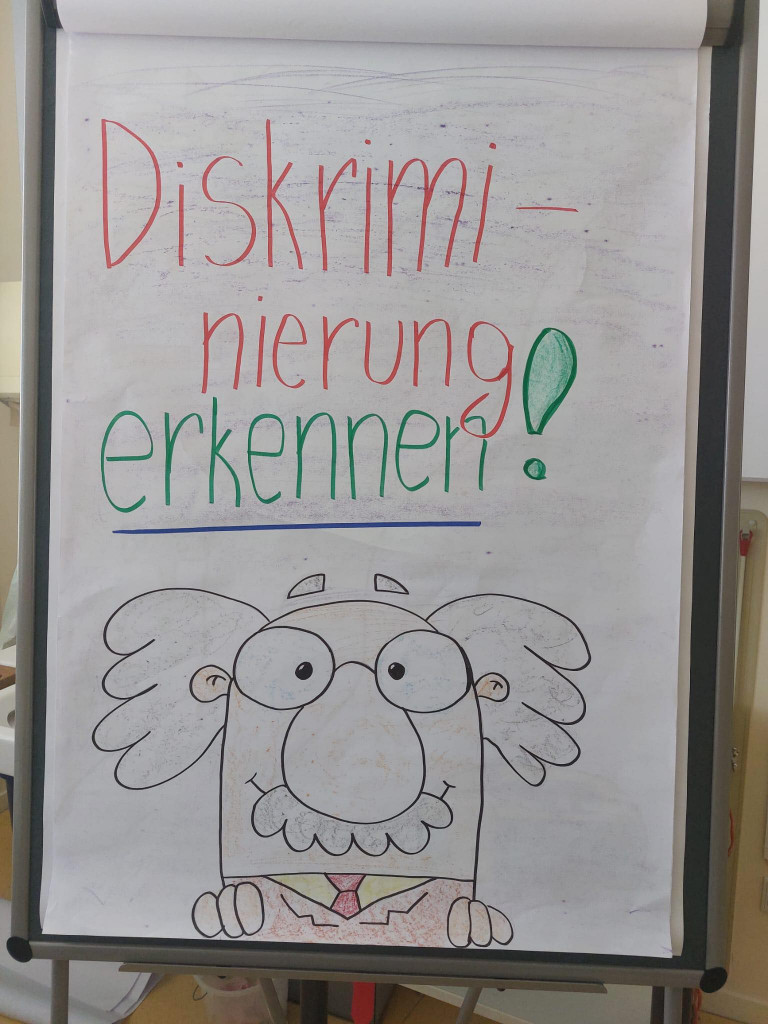 Diskrimi-
nierung
erkennen!